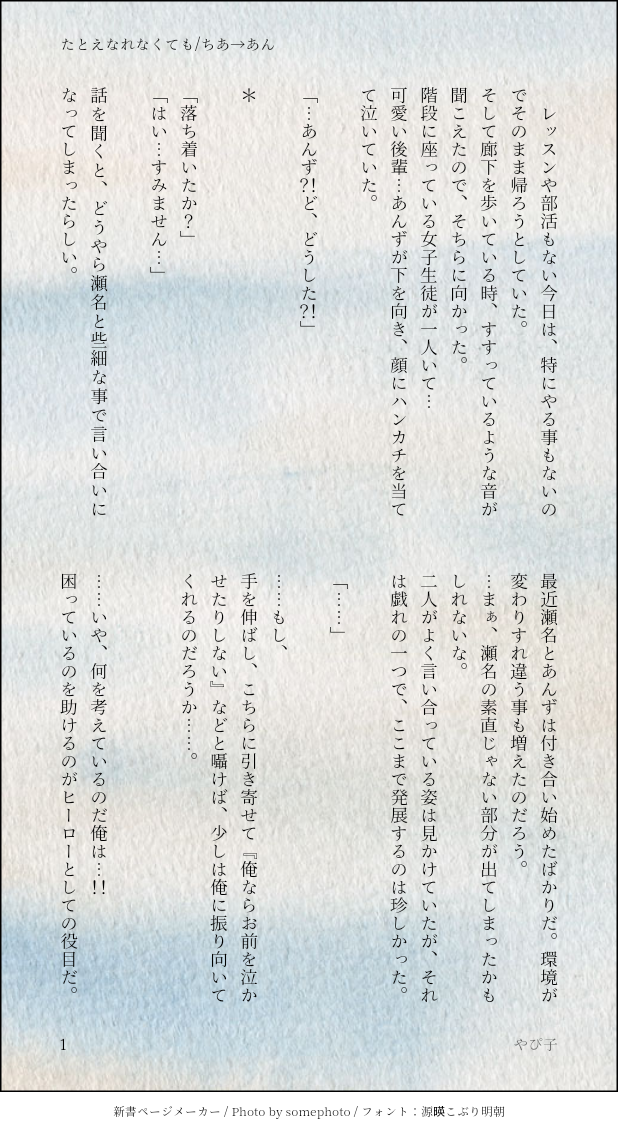 たとえなれなくても/ちあ→あん
レッスンや部活もない今日は、特にやる事もないの
でそのまま帰ろうとしていた。
そして廊下を歩いている時、すすっているような音が
聞こえたので、そちらに向かった。
階段に座っている女子生徒が一人いて…
可愛い後輩…あんずが下を向き、顔にハンカチを当て
て泣いていた。
「…あんず?!ど、どうした?!」
＊
「落ち着いたか？」
「はい…すみません…」
話を聞くと、どうやら瀬名と些細な事で言い合いに
なってしまったらしい。
最近瀬名とあんずは付き合い始めたばかりだ。環境が
変わりすれ違う事も増えたのだろう。
…まぁ、瀬名の素直じゃない部分が出てしまったかも
しれないな。
二人がよく言い合っている姿は見かけていたが、それ
は戯れの一つで、ここまで発展するのは珍しかった。
「……」
……もし、
手を伸ばし、こちらに引き寄せて『俺ならお前を泣か
せたりしない』などと囁けば、少しは俺に振り向いて
くれるのだろうか……。
……いや、何を考えているのだ俺は…!!
困っているのを助けるのがヒーローとしての役目だ。
1
やぴ子
新書ページメーカー / Photo by somephoto / フォント：源暎こぶり明朝